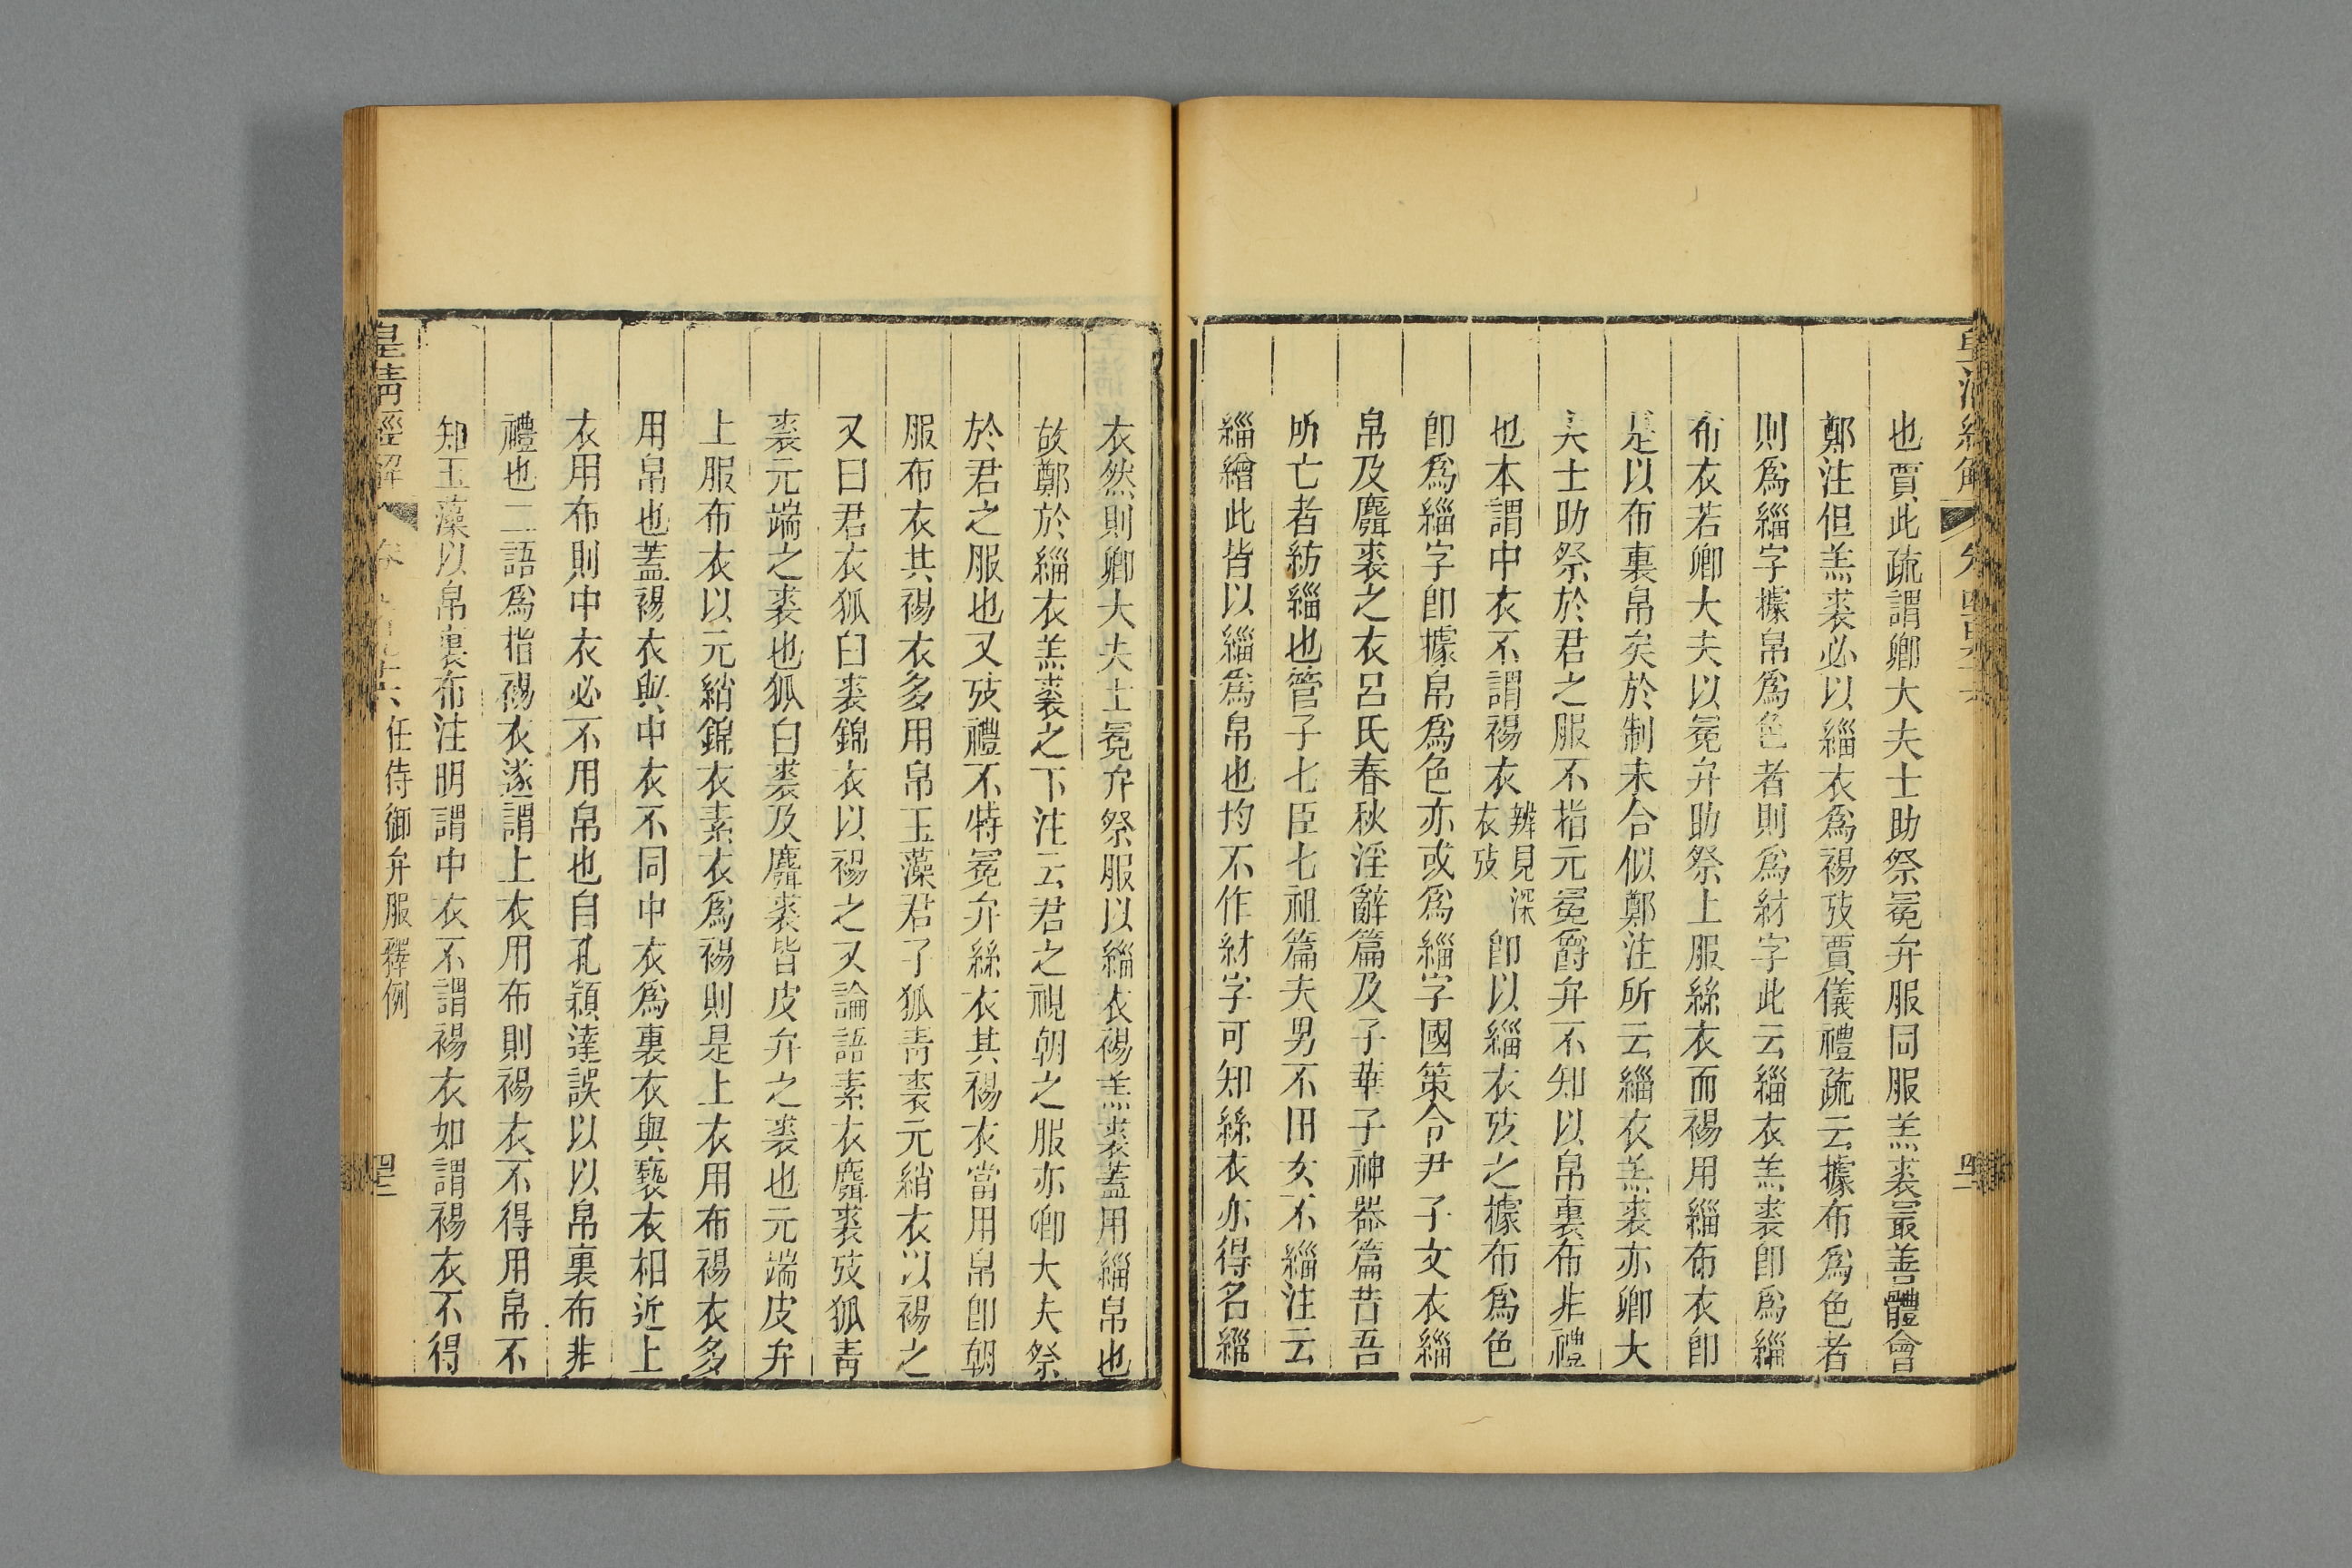 也賈此疏謂卿大夫士助祭冕弁服同服羔裘最善體會
鄭注但羔裘必以緇衣爲裼攷賈儀禮疏云據布爲色者
則爲緇字據帛爲色者則爲紂字此云緇衣羔裘卽爲緇
布衣若卿大夫以冕弁助祭上服絲衣而裼用緇布衣卽
是以布裏帛矣於制未合似鄭注所云緇衣羔裘亦卿大
夫士助祭於君之服不指元冕爵弁不知以帛裏布非禮
也本謂中衣不謂裼衣辨見深衣攷卽以緇衣攷之據布爲色
卽爲緇字卽據帛爲色亦或爲緇字國策令尹子文衣緇
帛及麛裘之衣呂氏春秋淫辭篇及子華子神器篇昔吾
所亡者紡緇也管子七臣七祖篇夫男不田女不緇注云
緇繒此皆以緇爲帛也均不作紂字可知絲衣亦得名緇
衣然則卿大夫士冕弁祭服以緇衣裼羔裘蓋用緇帛也
故鄭於緇衣羔裘之下注云君之視朝之服亦卿大夫祭
於君之服也又攷禮不特冕弁絲衣其裼衣當用帛卽朝
服布衣其裼衣多用帛玉藻君子狐靑裘元綃衣以裼之
又曰君衣狐白裘錦衣以裼之又論語素衣麛裘攷狐靑
裘元端之裘也狐白裘及麛裘皆皮弁之裘也元端皮弁
上服布衣以元綃錦衣素衣爲裼則是上衣用布裼衣多
用帛也蓋裼衣與中衣不同中衣爲裏衣與褻衣相近上
衣用布則中衣必不用帛也自孔穎達誤以以帛裏布非
禮也二語爲指裼衣遂謂上衣用布則裼衣不得用帛不
知玉藻以帛裏布注明謂中衣不謂裼衣如謂裼衣不得
皇淸經解 任侍御弁服釋例 四二